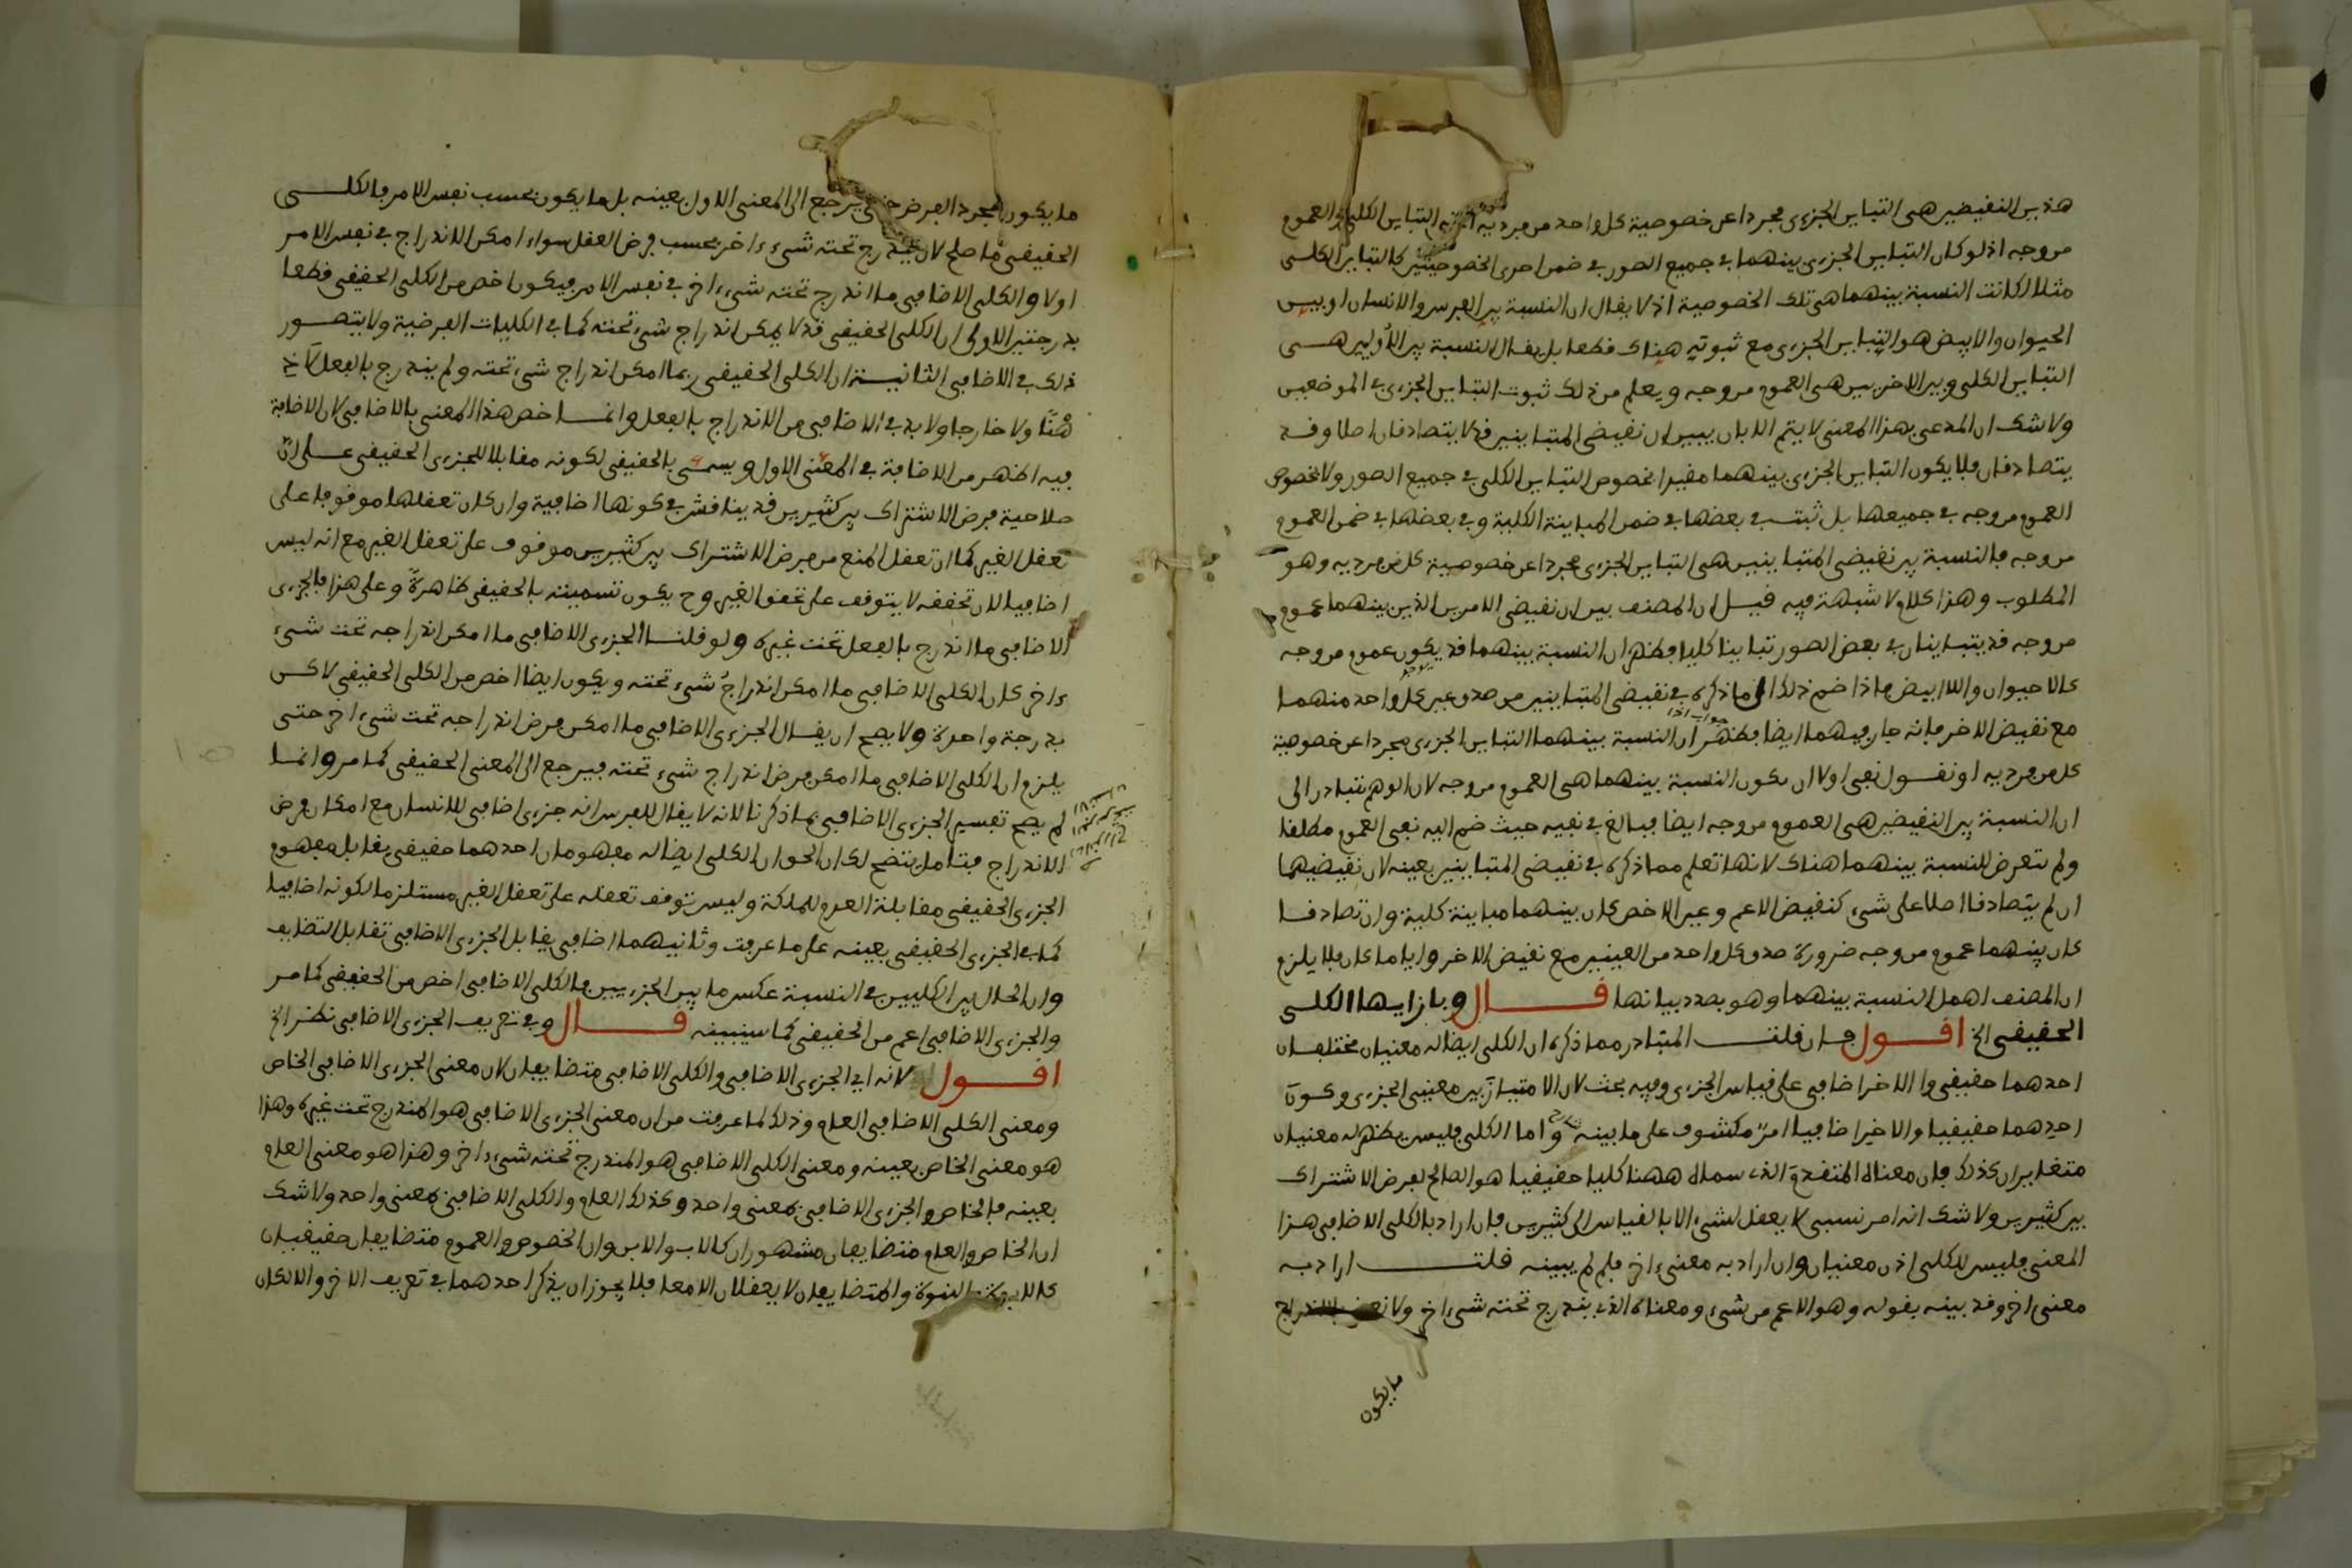 هذين النقيضين هي التباين الجزءى مجردا عن خصوصية كل واحد من فرديه التباين الكلي والعموم
من وجه اذ لو كان التباين الجزءى بينهما في جميع الصور في ضمن احدى الخصوصيتين كالتباين الكلى
مثلا لكانت النسبة بينهما هي تلك الخصوصية اذ لا يقال ان النسبة بين الفرس والانسان او بين
الحيوان والابيض هو التباين الجزءى مع ثبوته هناك قطعا بل يقال النسبة بين الأولين هـى
التباين الكلى وبين الاخريين هى العموم من وجه ويعلم من ذلك ثبوت التباين الجزءى في الموضعين
ولا شك ان المدعى بهذا المعنى لا يتم الا بان يبين ان نقيضى المتباينين قد لا يتصادقان اصلا وقد
يتصادقان فلا يكون التباين الجزءى بينهما مقيدا بخصوص التباين الكلى في جميع الصور ولا بخصوص
العموم من وجه في جميعها بل ثبتت في بعضها في ضمن المباينة الكلية وفي بعضها في ضمن العموم
من وجه فالنسبة بين نقيضى المتباينين هى التباين الجزءى مجردا عن خصوصية كل من فرديه وهو
المطلوب وهذا كلام لا شبهة فيه قيل ان المصنف بين ان نقيضى الامرين الذين بينهما عموم
من وجه قد يتباينان في بعض الصور تباينا كليا فظهر ان النسبة بينهما قد يكون عموم من وجه
كالا حيوان واللا ابيض فاذا ضم ذلك الى ما ذكره في نقيضى المتباينين من صدق عين كل واحد منهما
مع نقيض الاخر فانه جار فيهما ايضا فظهر ان النسبة بينهما التباين الجزءى مجردا عن خصوصية
جواب اذا
كل من فرديه او نقـول نفى اولا ان يكون النسبة بينهما هى العموم من وجه لان الوهم يتبادر الى
ان النسبة بين النقيضين هى العموم من وجه ايضا فبالغ في نفيه حيث ضم اليه نفى العموم مطلقا
ولم يتعرض للنسبة بينهما هناك لانها تعلم مما ذكره في نقيضى المتباينين بعينه لان نقيضيهما
ان لم يتصادقا اصلا على شىء كنقيض الاعم وعين الاخص كان بينهما مباينة كلية وان تصادقـا
كان بينهما عموم من وجه ضرورة صدق كل واحد من العينين مع نقيض الاخر وايا ما كان فلا يلزم
ان المصنف اهمل النسبة بينهما وهو بصدد بيانها قـــال وبازايها الكلى
الحقيقى الخ اقـــول فان قلتـــ المتبادر مما ذكره ان الكلى ايضا له معنيان مختلفان
احدهما حقيقى والاخر اضافى على قياس الجزءى وفيه بحث لان الامتياز بين معنيى الجزءى وكون
احدهما حقيقيا والاخر اضافيا امر مكشوف على ما بينه واما الكلى فليس يظهر له معنيان
متغايران كذلك فان معناه المتقدم الذى سماه ههنا كليا حقيقيا هو الصالح لفرض الاشتراك
بين كثيرين ولا شك انه امر نسبى لا يعقل لشىء الا بالقياس الى كثيرين فان اراد بالكلى الاضافى هـذا
المعنى فليس للكلى اذن معنيان وان اراد به معنى ءاخر فلم لم يبينه قلتـــ اراد به
معنى اخر وقد بينه بقوله وهو الاعم من شىء ومعناه الذى يندرج تحته شىء اخر ولا نعنى بالاندراج
ما يكون
ما يكون لمجرد الفرض حتى يرجع الى المعنى الاول بعينه بل ما يكون بحسب نفس الامر فالكلـى
الحقيقى ما صلح لان يندرج تحته شىء ءاخر بحسب فرض العقل سواء امكن الاندراج في نفس الامر
اولا والكلى الاضافى ما اندرج تحته شىء ءاخر في نفس الامر فيكون اخص من الكلى الحقيقى قطعا
بدرجتين الاولى ان الكلى الحقيقى قد لا يمكن اندراج شىء تحته كما في الكليات الفرضية ولا يتصـور
ذلك في الاضافى الثانيـة ان الكلى الحقيقى ربما امكن اندراج شىء تحته ولم يندرج بالفعل لا
ذهنا ولا خارجا ولا بد في الاضافى من الاندراج بالفعل وانمـا خص هذا المعنى بالاضافى لان الاضافة
فيه اظهر من الاضافة في المعنى الاول ويسمى بالحقيقى لكونه مقابلا للجزءى الحقيقى عـلى ان
صلاحية فرض الاشتراك بين كثيرين قد يناقش في كونها اضافية وان كان تعقلها موقوفا على
تعقل الغير كما ان تعقل المنع من فرض الاشتراك بين كثيرين موقوف على تعقل الغير مع انه ليس
اضافيا لان تحققه لا يتوقف على تحقق الغير وح يكون تسميته بالحقيقى ظاهرة وعلى هذا فالجزءى
الاضافى ما اندرج بالفعل تحت غيره ولو قلنـا الجزءى الاضافى ما امكن اندراجه تحت شىء
ءاخر كان الكلى الاضافى ما امكن اندراج شىء تحته ويكون ايضا اخص من الكلى الحقيقى لاكـن
بدرجة واحدة ولا يصح ان يقـال الجزءى الاضافى ما امكن فرض اندراجه تحت شىء اخر حتى
يلزم ان الكلى الاضافى ما امكن فرض اندراج شىء تحته فيرجع الى المعنى الحقيقى كما مر وانما
لم يصح تفسير الجزءى الاضافى بما ذكرنا لانه لا يقال للفرس انه جزءى اضافى للانسان مع امكان فرض
الاندراج فبتامل يتضح لك ان الحق ان الكلى ايضا له مفهومان احدهما حقيقى يقابل مفهوم
الجزءى الحقيقى مقابلة العدم للملكة وليس توقف تعقله على تعقل الغير مستلزما لكونه اضافيا
كما في الجزءى الحقيقى بعينه على ما عرفت وثانيهما اضافى يقابل الجزءى الاضافى تقابل التضايف
وان الحال بين الكليين في النسبة عكس ما بين الجزءيين فالكلى الاضافى اخص من الحقيقى كما مر
والجزءى الاضافى اعم من الحقيقى كما سيبينه قـــال وفي تعريف الجزءى الاضافى نظر الخ
اقـــول لانه اي الجزءى الاضافى والكلى الاضافى متضايفان لان معنى الجزءى الاضافى الخاص
ومعنى الكلى الاضافى العام وذلك لما عرفت من ان معنى الجزءى الاضافى هو المندرج تحت غيره وهذا
هو معنى الخاص بعينه ومعنى الكلى الاضافى هو المندرج تحته شىء ءاخر وهذا هو معنى العام
بعينه فالخاص والجزءى الاضافى بمعنى واحد وكذلك العام والكلى الاضافى بمعنى واحد ولا شك
ان الخاص والعام متضايفان مشهوران كالاب والابن وان الخصوص والعموم متضايفان حقيقيان
كالابوة والبنوة والمتضايفان لا يعقلان الا معا فلا يجوز ان يذكر احدهما في تعريف الاخر والا لكان